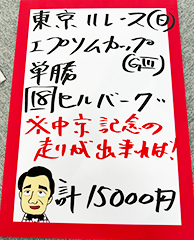 東京11レース(日)
エプソムカップ
(GⅢ)
単勝
18ヒルバーグ
※中京記念の
走りが出来れば!
計15000円